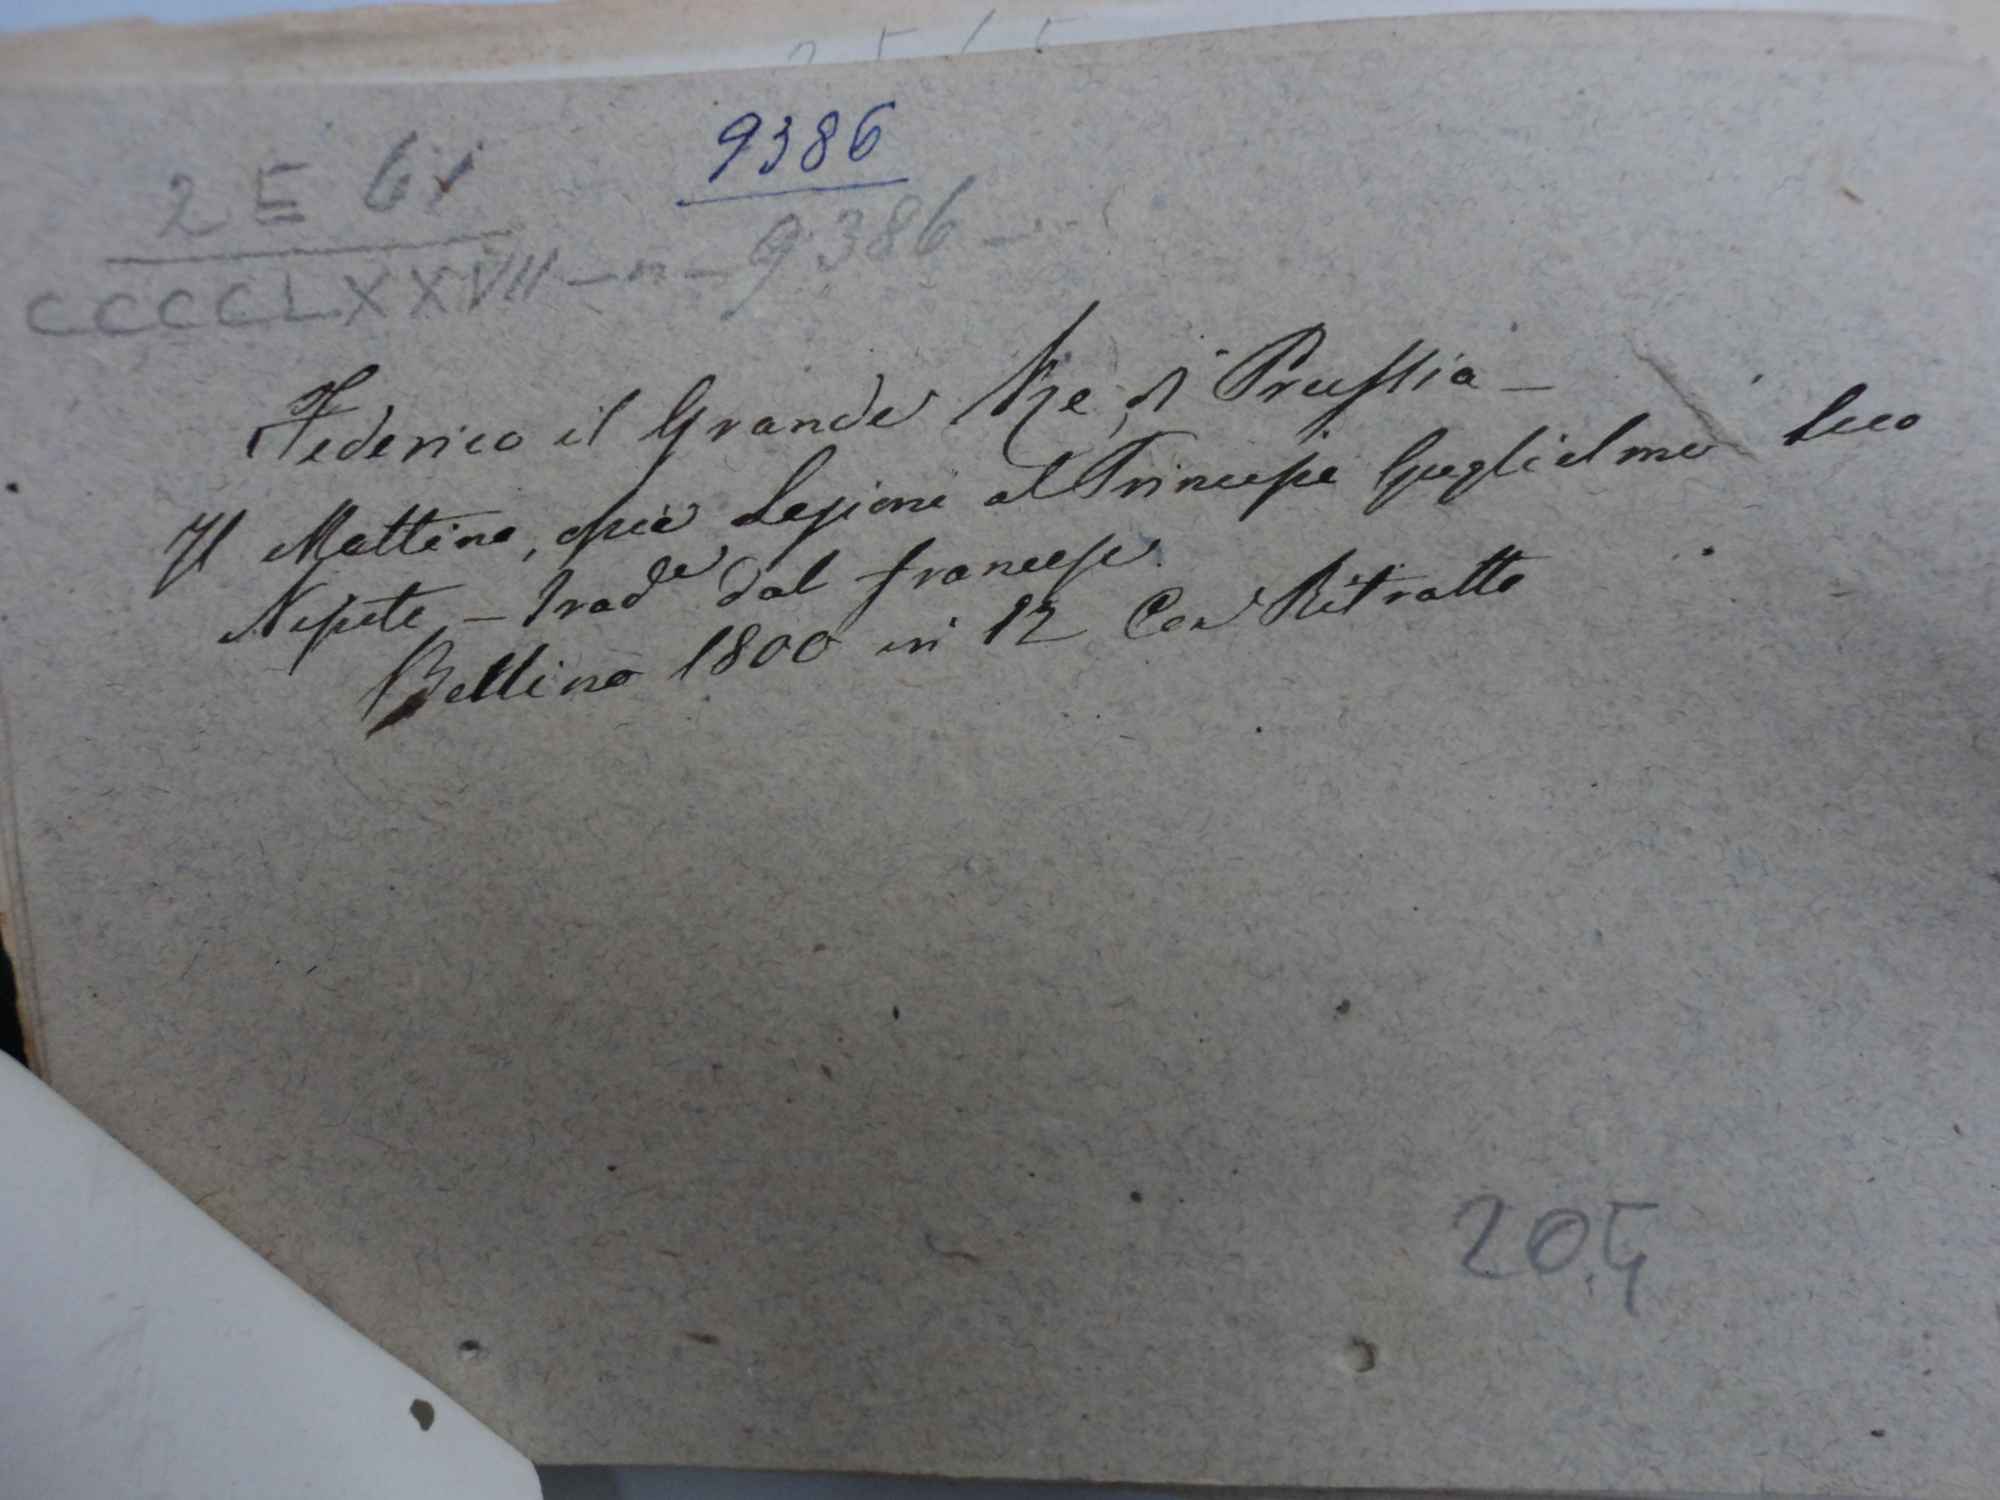 2 E 61
9386
CCCCLXXVII - n - 9386
Federico il Grande Re di Prussia -
Il Mattino, ossia Lezione al Principe Guglielmo suo
Nipote - Trad.e dal francese.
Bellino 1800 in 12 Con Ritratto
20,5